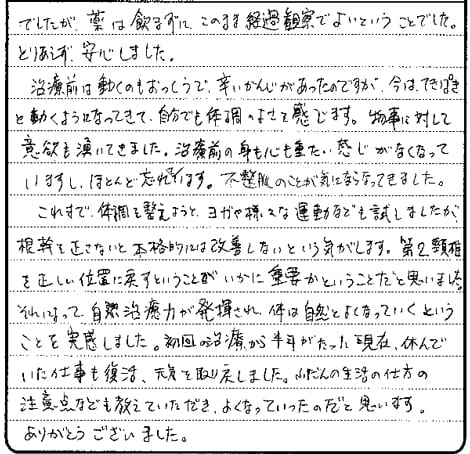 でしたが、薬は飲まずに、このまま経過観察でよいということでした。
とりあえず、安心しました。
治療前は動くのもおっくうで、辛いかんじがあったのですが、今は、てきぱき
と動くようになってきて、自分でも体調のよさを感じます。物事に対して
意欲も湧いてきました。治療前の身も心も重たい感じがなくなって
いますし、ほとんど忘れています。不整脈のことが気にならなってきました。
これまで、体調を整えようと、ヨガや様々な運動なども試しましたが、
根幹を正さないと本格的には改善しないという気がします。第2頸椎
を正しい位置に戻すということがいかに重要かということだと思いました。
それによって、自然治癒力が発揮され、体は自然とよくなっていくという
ことを実感しました。初回の治療から半年がたった現在、休んで
いた仕事も復活、元気を取り戻しました。ふだんの生活の仕方の
注意点なども教えていただき、よくなっていったのだと思います。
ありがとうございました。